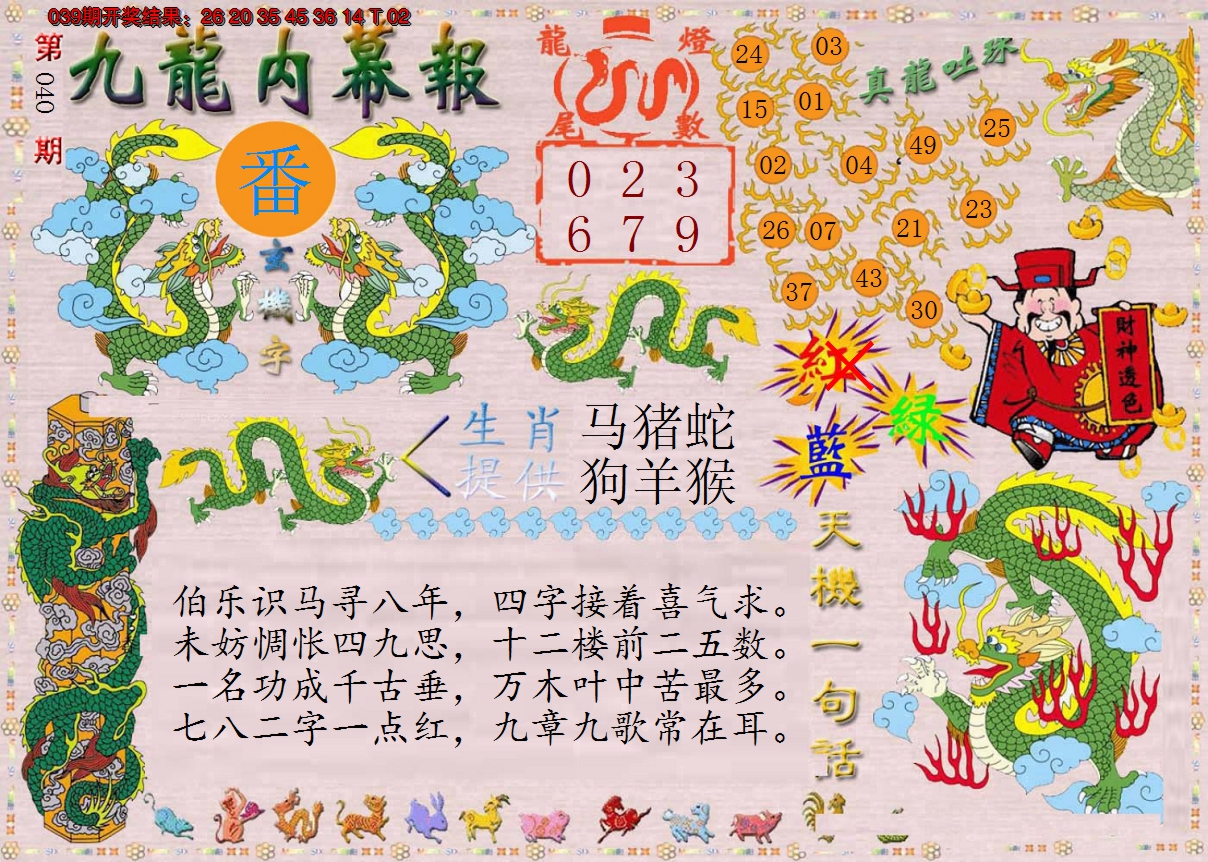 039期开奖结果：26 20 35 45 36 14 T 02
第040期
九龍内幕報
番
玄機字
龍燈尾數
0 2 3
6 7 9
真龍吐珠
24 03
15 01
49 25
02 04
26 07 21 23
37 43 30
紅
綠
藍
財神透色
生肖提供
马猪蛇
狗羊猴
天機一句话
伯乐识马寻八年，四字接着喜气求。
未妨惆怅四九思，十二楼前二五数。
一名功成千古垂，万木叶中苦最多。
七八二字一点红，九章九歌常在耳。